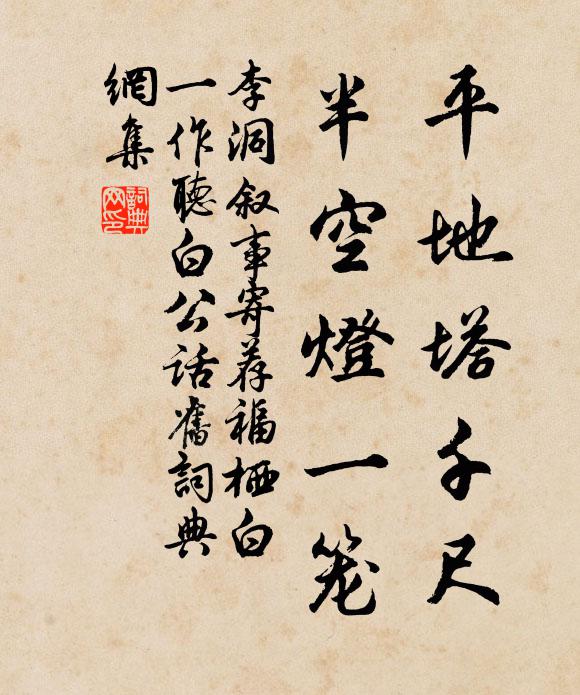 平地塔千尺
半空燈一笼
李洞叙事寄荐福栖白
一作聽白公話舊詞典
網集
詞典
网印